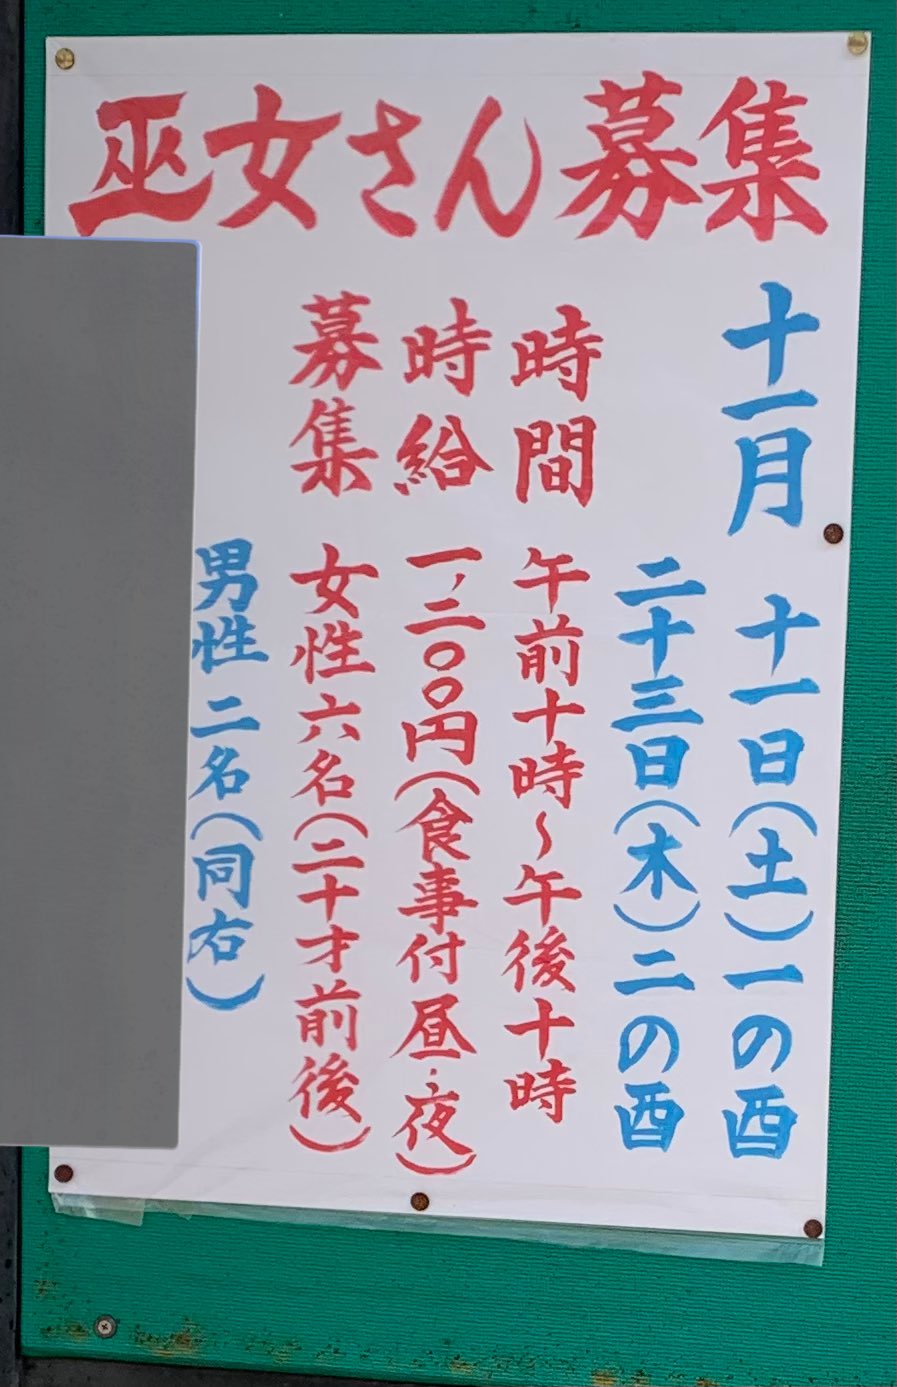 巫女さん募集
十一月 十一日(土)一の酉
二十三日(木)二の酉
時間 午前十時~午後十時
時給 一,二〇〇円(食事付昼・夜)
募集 女性六名(二十才前後)
男性二名(同右)